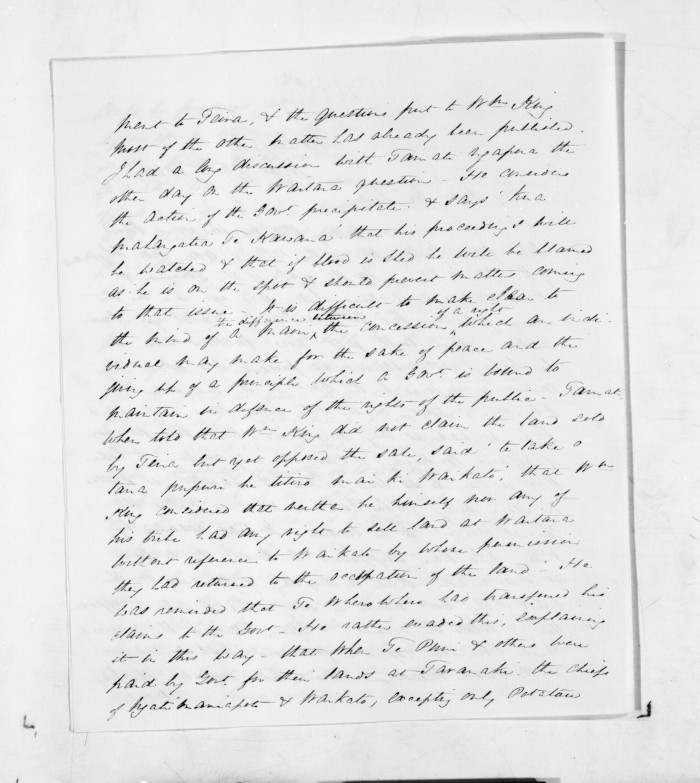 ment to Teira, & the questions put to Wm King
most of the other matter has already been published.
I had a long discussion with Tamati Ngapora the
other day on the Waitara question - He considers
the action of the Govt. precipitate. & says 'kia
mahara to Kawana' that his proceedings will
be watched & that if blood is shed he will be blamed
as he is on the spot & should prevent matters coming
to that issue. It is difficult to make clear to
the difference between of a right
the mind of a Maori, the concession, which an indi-
vidual may make for the sake of peace and the
giving up of a principle which a Govt. is bound to
maintain in defence of the rights of the public - Tamati,
when told that Wm King did not claim the land sold
by Teira but yet opposed the sale, said 'te take o
tana pupuri he titiro mai ki Waikato', that Wm
King considered that neither he himself nor any of
his tribe had any right to sell land at Waitara
without reference to Waikato by whose permission
they had returned to the occupation of the land - He
was reminded that Te Wherowhero had transferred his
claims to the Govt - He rather evaded this, explaining
it in this way - that when Te Puni & others were
paid by Govt for their lands at Taranaki the chiefs
of Ngatimaniapoto & Waikato, excepting only Potatau